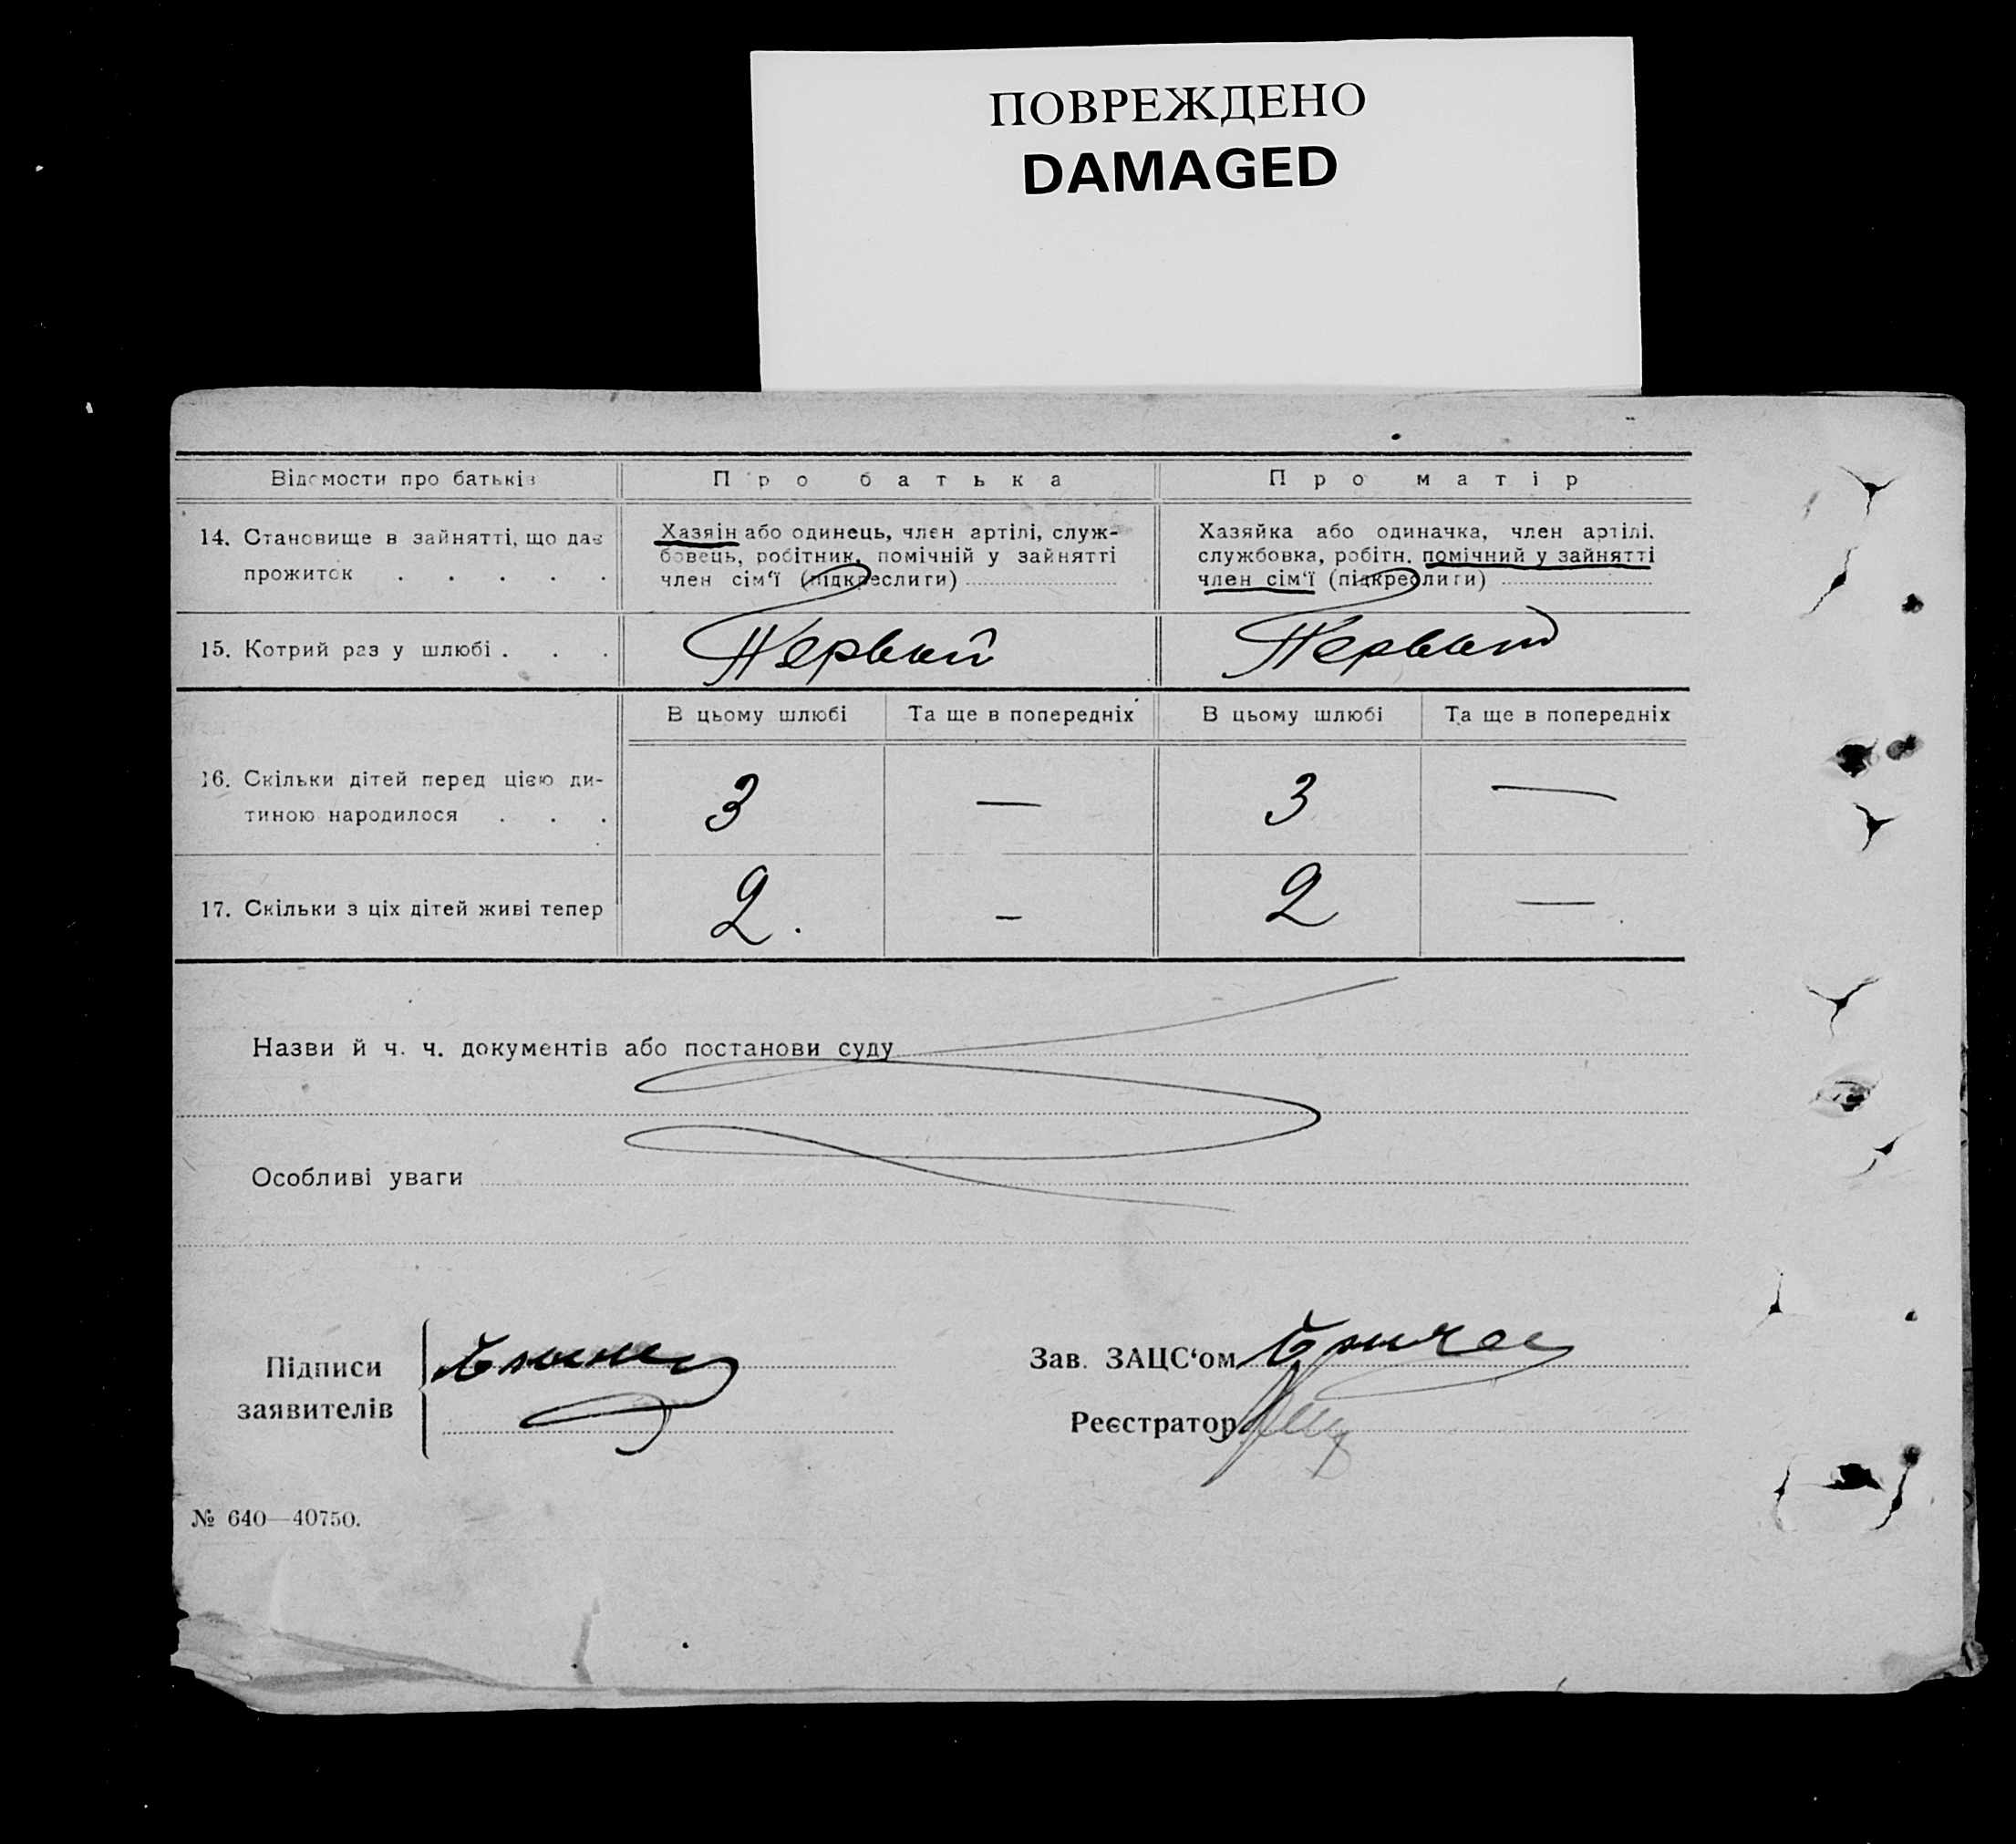 ПОВРЕЖДЕНО
DAMAGED
Відомости про батьків
Про батька
Про матір
14. Становище в зайнятті, що дає
прожиток . . . . .
Хазяін або одинець, член артілі, служ-
бовець, робітник, помічній у зайнятті
член сім'ї (підкреслити)
Хазяйка або одиначка, член артілі.
службовка, робітн. помічний у зайнятті
член сім'ї (підкреслити)
15. Котрий раз у шлюбі . . .
Первый
Первый
В цьому шлюбі
Та ще в попередніх
В цьому шлюбі
Та ще в попередніх
16. Скільки дітей перед цією ди-
тиною народилося . . .
3
—
3
—
17. Скільки з ціх дітей живі тепер
2.
–
2
—
Назви й ч. ч. документів або постанови суду
Особливі уваги
Підписи
заявителів
Зав. ЗАЦС'ом
Реєстратор
№ 640—40750.